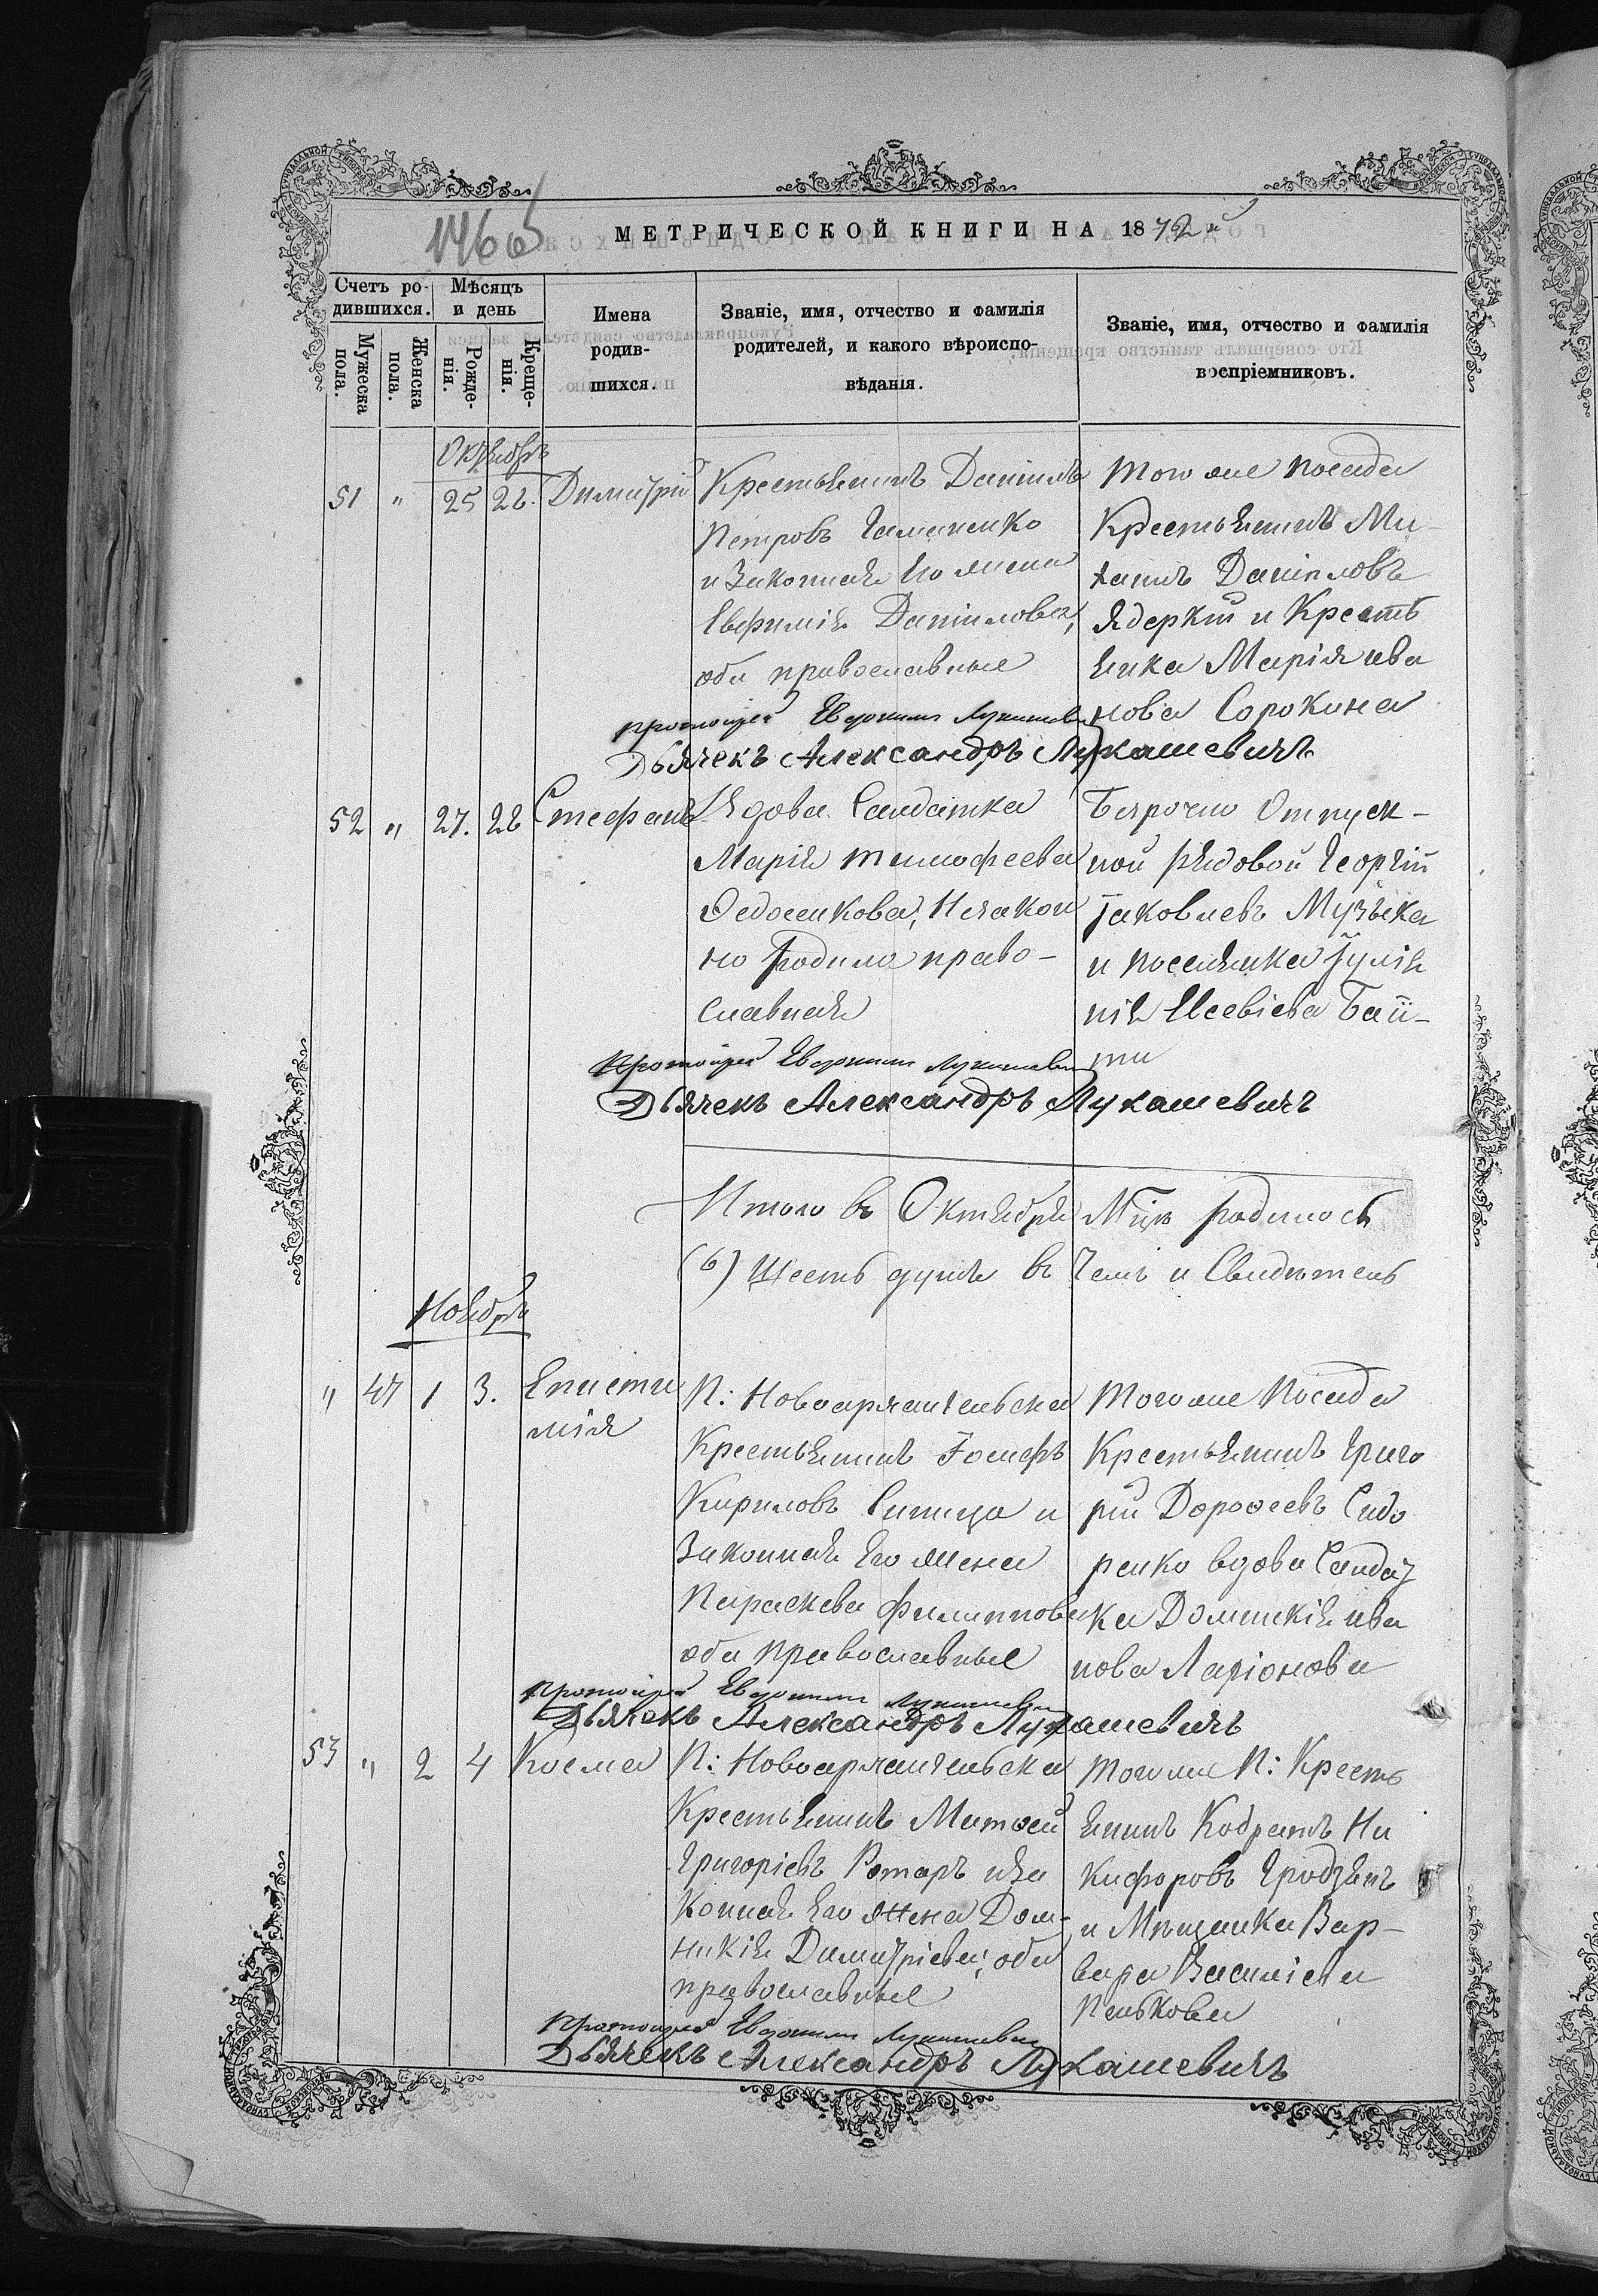 МЕТРИЧЕСКОЙ КНИГИ НА 1872й
Счетъ ро-
дившихся.
Мужеска
пола.
Женска
пола.
Мѣсяцъ
и день
Рожде-
нія.
Креще-
нія.
Имена
родив-
шихся.
Званіе, имя, отчество и фамилія
родителей, и какого вѣроиспо-
вѣданія.
Званіе, имя, отчество и фамилія
воспріемниковъ.
Октябрь
51 " 25 26. Димитрій
Крестьянинъ Даніилъ
Петровъ
и Законная Его жена
Евфимія Даніилова,
оба православные
Того же посада
Крестьянинъ Ми-
хаилъ Даніиловъ
Ядеркій и Кресть
янка Марія Ива
нова Сорокина
Протоіерей Евдокимъ Лукашевичъ
Дьячекъ Александръ Лукашевичъ
52 " 27. 28 Стефанъ
Вдова Салдатка
Марія Тимофеева
Федосенкова, Незакон
но родила право-
славная
Безрочно Отпуск-
ной рядовой Георгій
Іаковлевъ Музыка
и поселянка Іулія
нія Евсевіева
Протоіерей Евдокимъ Лукашевичъ
Дьячекъ Александръ Лукашевичъ
Итого въ Октябрѣ Мцѣ родилось
(6) Шесть душъ въ Чемъ и Свидѣтель
Ноябрь
" 47 1 3. Еписти
мія
П: Новоархангельска
Крестьянинъ Іосифъ
Кириловъ Синица и
Законная Его жена
Параскева Филиппова
оба Православные
Того же Посада
Крестьянинъ Григо
рій Дорофеевъ Сидо
ренко вдова Салдат
ка Домникія Ива
нова Ларіонова
Протоіерей Евдокимъ Лукашевичъ
Дьячекъ Александръ Лукашевичъ
53 " 2 4 Косма
П: Новоархангельска
Крестьянинъ Матфей
Григоріевъ Ротаръ иЗа
Конная Его жена Дом-
никія Димитріева, оба
православные
Того же П: Кресть
янинъ Кодратъ Ни
кифоровъ
и Мѣщанка Вар-
вара Василіева
Пенькова
Протоіерей Евдокимъ Лукашевичъ
Дьячекъ Александръ Лукашевичъ